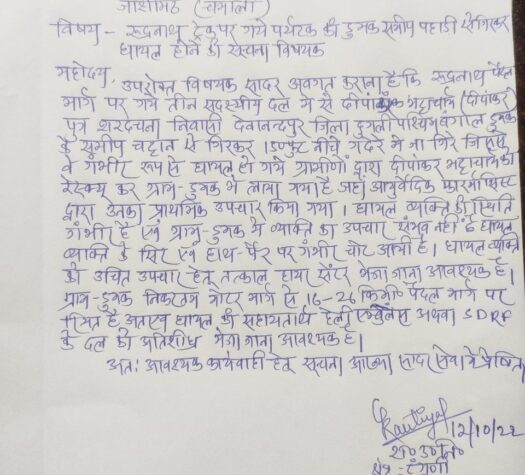 जोशीमठ (चमोली)
विषय - रूद्रनाथ ट्रेक पर गये पर्यटक की डुमक समीप पहाडी से गिरकर
घायल होने की सूचना विषयक
महोदय,
उपरोक्त विषयक सादर अवगत कराना है कि रूद्रनाथ पैदल
मार्ग पर गये तीन सदस्यीय दल में से दीपांकुर भट्टाचार्य (दीपांकर)
पुत्र शरदचना निवासी देवानन्दपुर जिला हुगली पश्चिम बंगाल डुमक
के समीप चट्टान से गिरकर 150 फुट नीचे गदेरे में जा गिरे जिससे
वे गंभीर रूप से घायल हो गये ग्रामीणों द्वारा दीपांकर भट्टाचार्य का
रेस्क्यू कर ग्राम-डुमक में लाया गया है जहां आयुर्वेदिक फार्मासिस्ट
द्वारा उनका प्राथमिक उपचार किया गया । घायल व्यक्ति की स्थिति
गंभीर है एवं ग्राम-डुमक में व्यक्ति का उपचार संभव नहीं है घायल
व्यक्ति के सिर एवं हाथ-पैर पर गंभीर चोट आयी है । घायल व्यक्ति
को उचित उपचार हेतु तत्काल हायर सेंटर भेजा जाना आवश्यक है।
ग्राम-डुमक निकटतम मोटर मार्ग से 16-26 किमी० पैदल मार्ग पर
स्थित है अतएव घायल की सहायतार्थ हेली एम्बुलेंस अथवा SDRF
के दल को अतिशीघ्र भेजा जाना आवश्यक है।
अतः आवश्यक कार्यवाही हेतु सूचना आख्या सादर सेवा में प्रेषित
12/10/22
रा०उ०नि०